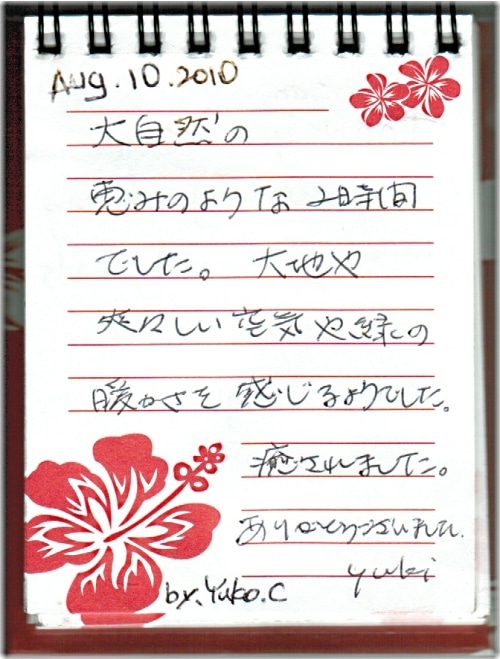 Aug.10.2010
大自然の
恵みのような2時間
でした。 大地や
爽々しい空気や緑の
暖かさを感じるようでした。
癒されました。
ありがとうございました。
yuki
by.Yuko.C